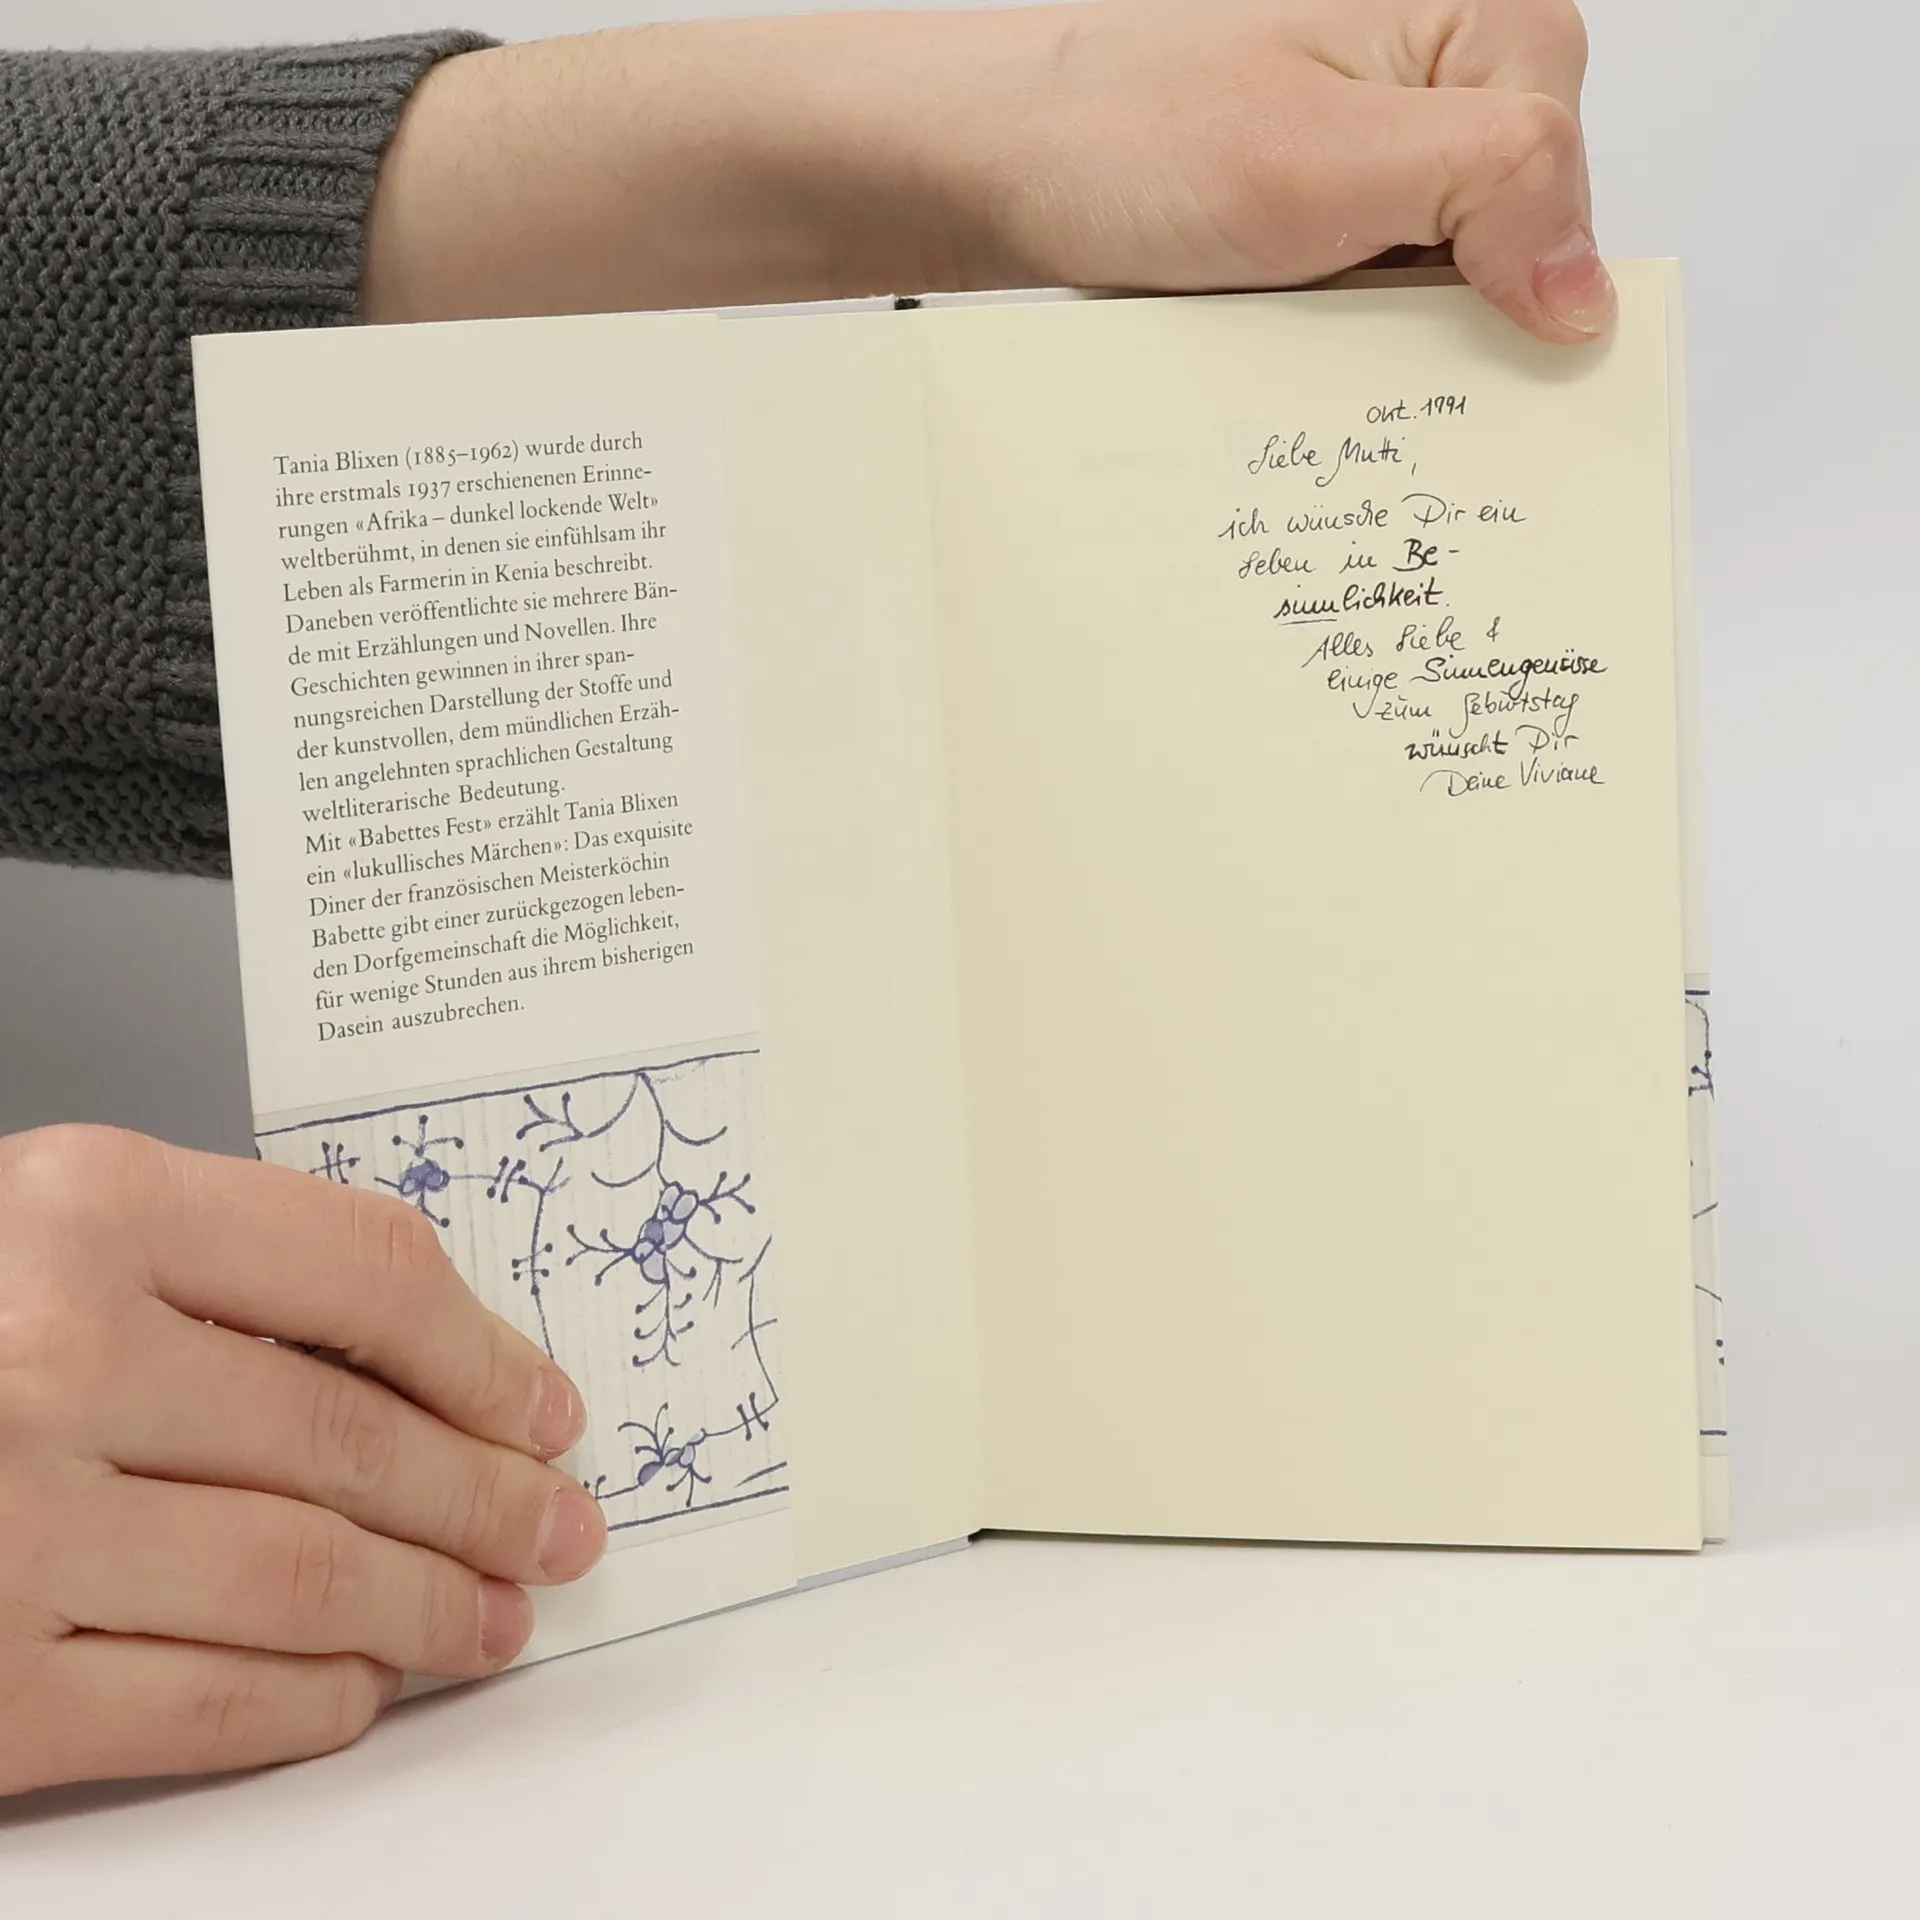 Tania Blixen (1885–1962) wurde durch
ihre erstmals 1937 erschienenen Erinne-
rungen «Afrika – dunkel lockende Welt»
weltberühmt, in denen sie einfühlsam ihr
Leben als Farmerin in Kenia beschreibt.
Daneben veröffentlichte sie mehrere Bän-
de mit Erzählungen und Novellen. Ihre
Geschichten gewinnen in ihrer span-
nungsreichen Darstellung der Stoffe und
der kunstvollen, dem mündlichen Erzäh-
len angelehnten sprachlichen Gestaltung
weltliterarische Bedeutung.
Mit «Babettes Fest» erzählt Tania Blixen
ein «lukullisches Märchen»: Das exquisite
Diner der französischen Meisterköchin
Babette gibt einer zurückgezogen leben-
den Dorfgemeinschaft die Möglichkeit,
für wenige Stunden aus ihrem bisherigen
Dasein auszubrechen.
Okt. 1991
Liebe Mutti,
ich wünsche Dir ein
Leben in Be-
sinnlichkeit.
Alles Liebe &
einige Sinnengenüsse
zum Geburtstag
wünscht Dir
Deine Viviane